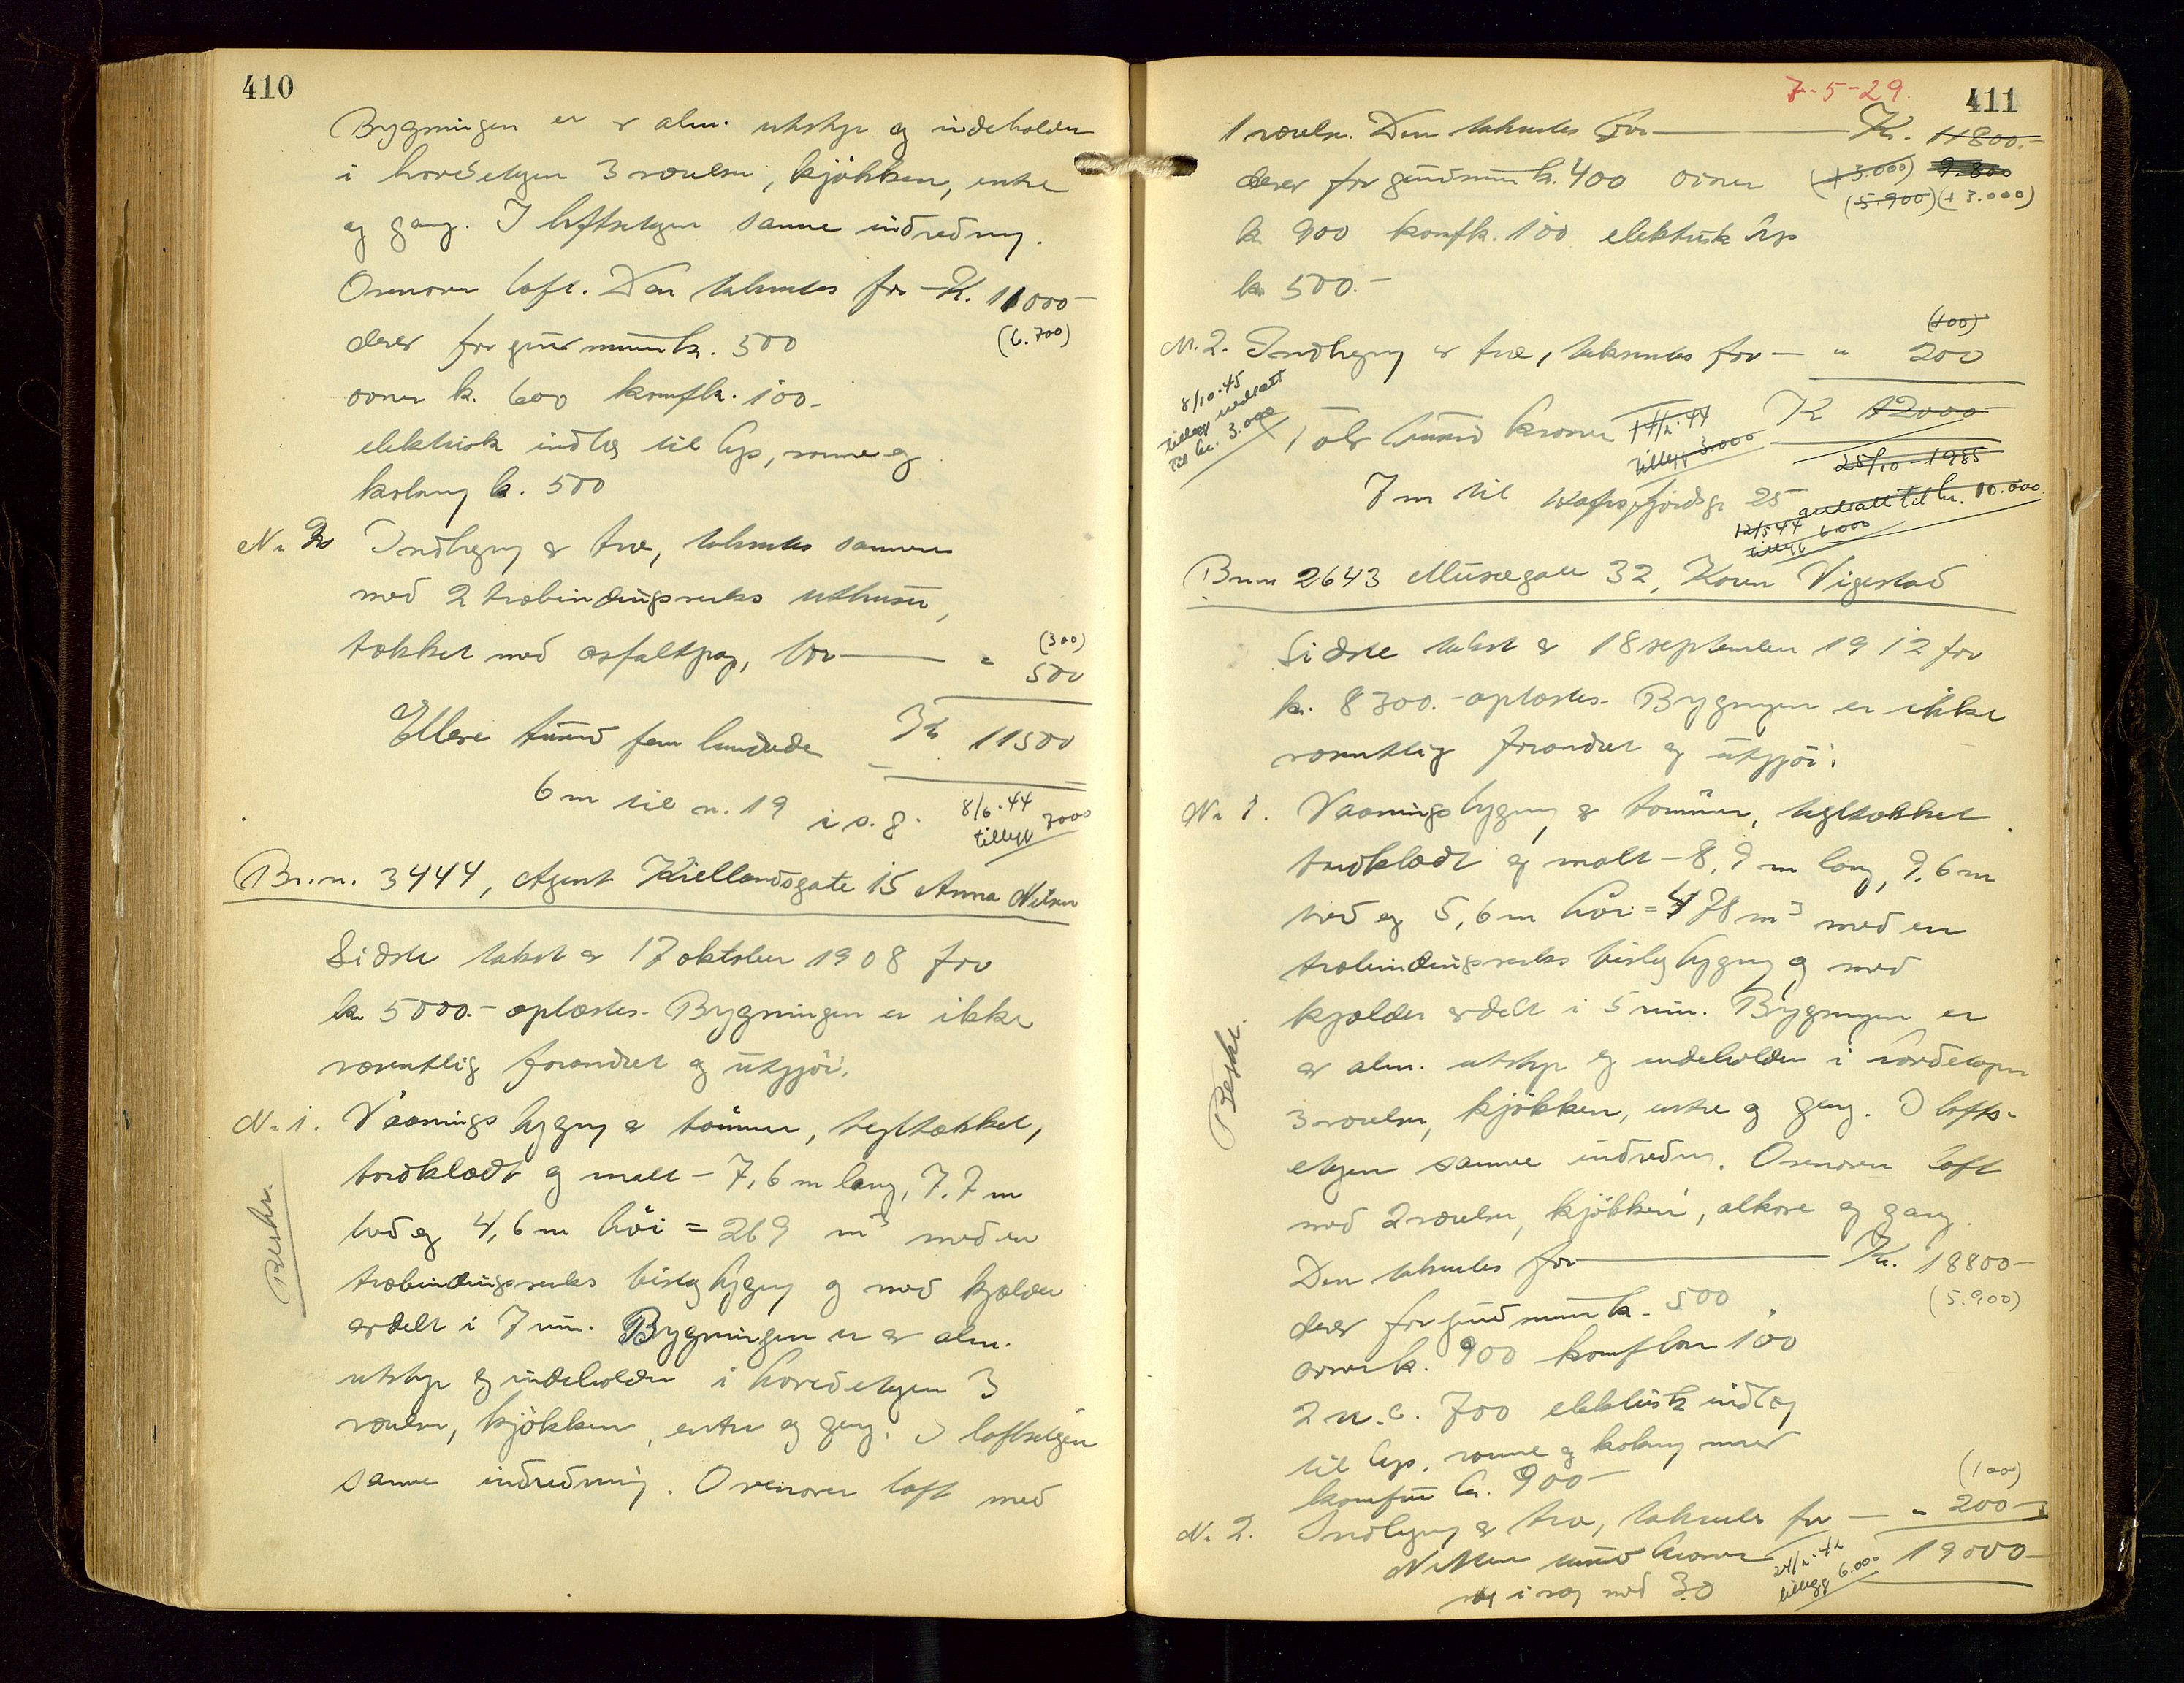 410
Bygningen er av alm. utstyr og indeholder
i hovedetagen 3 værelser, kjøkken, entre
og gang. I loftsetagen samme indredning.
Ovenover loft. Den takseres for – Kr. 11000–
derav for grundmur kr. 500 (6.700)
ovner kr. 600 komfkr. 100.
elektrisk indlæg til lys, varme og
kokning kr. 500
Nr 2 Indhegning av træ, takseres sammen
med 2 træbindingsverks uthuser,
tækket med asfaltpap, for — " 500
(300)
Elleve tusind fem hundrede Kr 11500
6 m til nr. 19 i s. g. 8/6-44
tillegg 7000
Br.nr. 3444, Agent Kiellandsgate 15 Anna Nilsen
Sidste takst av 17 oktober 1908 for
kr. 5000.– oplæstes. Bygningen er ikke
væsentlig forandret og utgjør:
Nr 1. Vaaningsbygning av tømmer, tegltækket,
bordklædt og malt – 7,6 m lang, 7,7 m
bred og 4,6 m høi = 269 m3 med en
træbindingsverks bislagbygning og med kjælder
avdelt i 7 rum. Bygningen er av alm.
utstyr og indeholder i hovedetagen 3
værelser, kjøkken, entre og gang. I loftsetagen
samme indredning. Ovenover loft med
Beskr.
7-5-29. 411
1 værelse. Den takseres for — Kr. 11800.–
derav for grundmur kr. 400 ovner (+3.000) 9.800
(5.900) (+3.000)
kr 900 komfkr. 100 elektrisk lys
kr 500.–
(100)
Nr. 2. Indhegning av træ, takseres for — " 200
8/10-45
tillegg nedsatt
til kr. 3.000
Tolv tusind kroner Kr 12000
11/2-44
tillegg 3.000
25/10-1935
nedsatt til kr. 10.000.
7 m til Hafrsfjordsgt 25
12/5 44
tillegg 6.000
Br.nr 2643 Musegate 32, Karen Vigestad
Sidste takst av 18 september 1912 for
kr. 8300.– oplæstes. Bygningen er ikke
væsentlig forandret og utgjør:
Nr 1. Vaaningsbygning av tømmer, tegltækket
bordklædt og malt – 8,9 m lang, 9,6 m
bred og 5,6 m høi = 478 m3 med en
træbindingsverks bislagbygning og med
kjælder avdelt i 5 rum. Bygningen er
av alm. utstyr og indeholder i hovedetagen
3 værelser, kjøkken, entre og gang. I lofts-
etagen samme indredning. Ovenover loft
med 2 værelser, kjøkken, alkove og gang.
Beskr.
Den takseres for — Kr. 18800–
derav for grundmur kr. 500 (5.900)
ovner kr. 900 komfkr 100
2 w.c. 700 elektrisk indlæg
til lys, varme og kokning med
komfur kr. 900–
(100)
Nr. 2. Indhegning av træ, takseres for — " 200–
Nitten tusind kroner 19000–
24/2-42
tillegg 6.000
i væg med 30